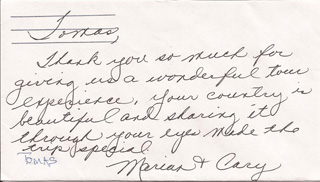 Tomas,
Thank you so much for
giving us a wonderful tour
experience. Your country is
beautiful and sharing it
through your eyes made the
trip special
TOMAS
Marian & Cary